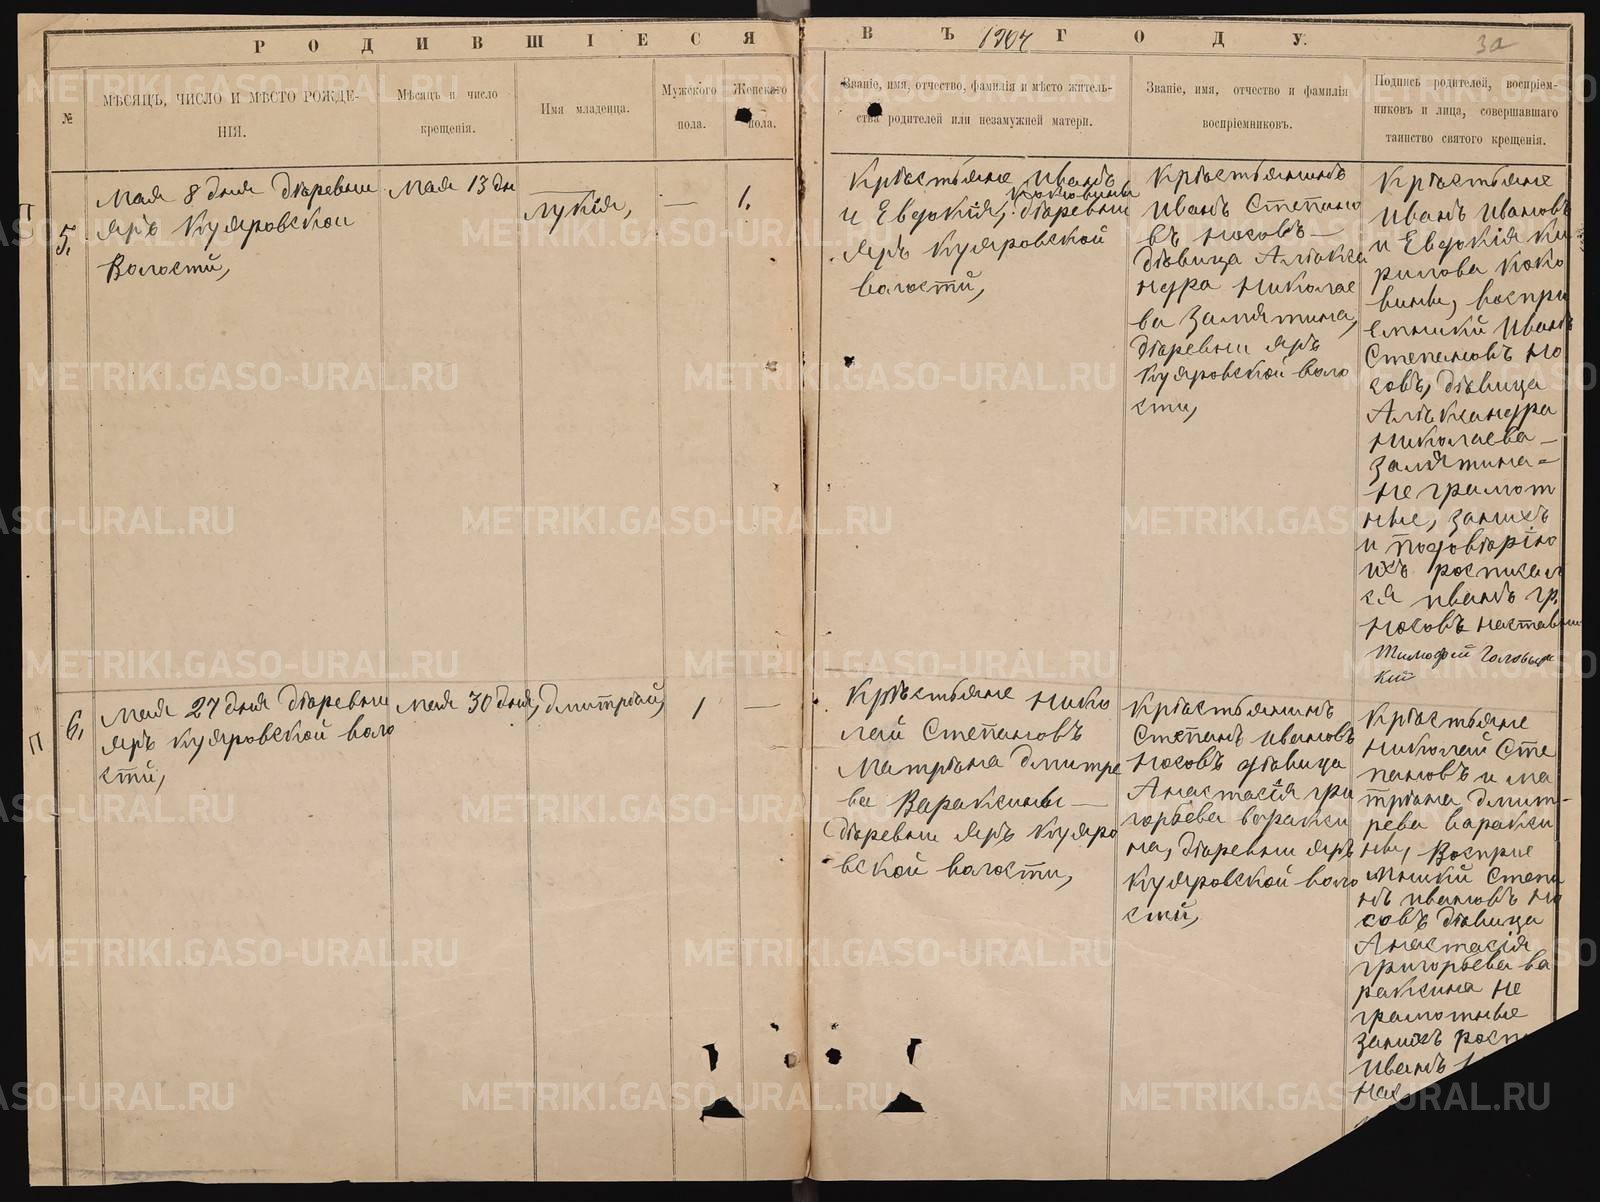 РОДИВШІЕСЯ
ВЪ 1904 ГОДУ.
За
№
МѢСЯЦЪ, ЧИСЛО И МѢСТО РОЖДЕ-
НІЯ.
Мѣсяцъ и число
крещенія.
Имя младенца.
Мужского
пола.
Женскаго
пола.
Званіе, имя, отчество, фамилія и мѣсто житель-
ства родителей или незамужней матери.
Званіе, имя, отчество и фамилія
воспріемниковъ.
Подпись родителей, воспріем-
никовъ и лица, совершавшаго
таинство святого крещенія.
П
5.
Мая 8 дня дѣревни
Яръ Куяровской
Волости,
Мая 13 дн
Лукія,
—
1.
Крѣстьяне Иванъ
Коковины
и Евдокія, дѣревни
Яръ Куяровской
волости,
Крѣстьянинъ
Иванъ Степано
въ Носовъ —
дѣвица Алѣкса
ндра Николае
ва Замятина,
дѣревни Яръ
Куяровской воло
сти,
Крѣстьяне
Иванъ Ивановъ
и Евдокія Ки
рилова Коко
вины, воспри
емники Иванъ
Степановъ Но
совъ, дѣвица
Алѣксандра
Николаева —
Замятина =
не грамот
ные, занихъ
и подовѣрію
ихъ росписал
ся иванъ гр.
Носовъ наставни
Тимофей Головыр
кий
П
6.
Мая 27 дня дѣревни
Яръ Куяровской воло
сти,
Мая 30 дня,
Дмитрѣй,
1
—
Крѣстьяне Нико
лай Степановъ
Матрѣна Дмитре
ва Вараксины —
дѣревни Яръ Куяро
вской волости,
Крѣстьянинъ
Степанъ Ивановъ
Носовъ дѣвица
Анастасія Гри
горьева Вараксі
на, дѣревни Яръ
Куяровской воло
сти,
Крѣстьяне
Николай Сте
пановъ и Ма
трѣна Дмит-
рева Вараксі
ны, Воспріе
мники Степа
нъ ивановъ Но
совъ дѣвица
Анастасія
Григорьева Ва
раксина не
грамотные
занихъ росп
Иванъ
Нас
METRIKI.GASO-URAL.RU